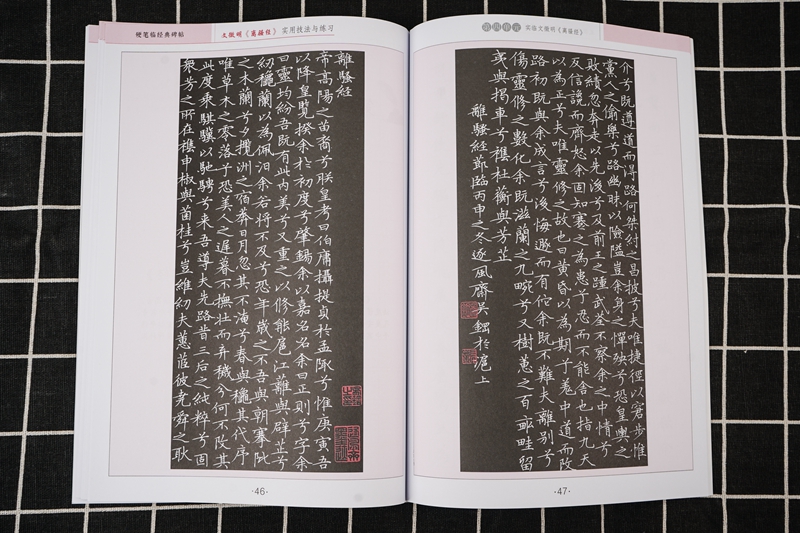 硬笔临经典碑帖
文徵明《離騷經》 实用技法与练习
離騷經
帝高陽之苗裔兮朕皇考曰伯庸攝提貞於孟陬兮惟庚寅吾
以降皇覽揆余於初度兮肇錫余以嘉名名余曰正則兮字余
曰靈均紛吾既有此内美兮又重之以修能扈江離與辟芷兮
紉穐蘭以為佩汩余若將不及兮恐年歲之不吾與朝搴阰
之木蘭兮夕攬洲之宿莽日月忽其不淹兮春與穐其代序
唯草木之零落兮恐美人之遲暮不撫壯而弃穢兮何不改其
此度乘騏驥以馳騁兮来吾導夫先路昔三后之純粹兮固
衆芳之所在雜申椒與菌桂兮豈維紉夫蕙茝彼堯舜之耿
·46·
第四單元 实临文徵明《離騷經》
介兮既遵道而得路何桀紂之昌披兮夫唯捷徑以窘步惟
黨人之偷樂兮路幽昧以險隘豈余身之憚殃兮恐皇輿之
敗績忽奔走以先後兮及前王之踵武荃不察余之中情兮
反信讒而齊怒余固知謇之為患兮忍而不能舍也指九天
以為正兮夫唯靈修之故也曰黄昏以為期兮羌中道而改
路初既與余成言兮後悔遯而有佗余既不難夫離别兮
傷靈修之數化余既滋蘭之九畹兮又樹蕙之百畝畦留
夷與揭車兮雜杜蘅與芳芷
離騷經節臨丙申之冬逐風齋吳於滬上
·47·